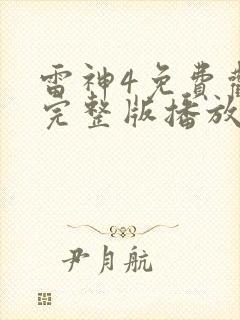 雷神4免費
完整版播放
尹月航